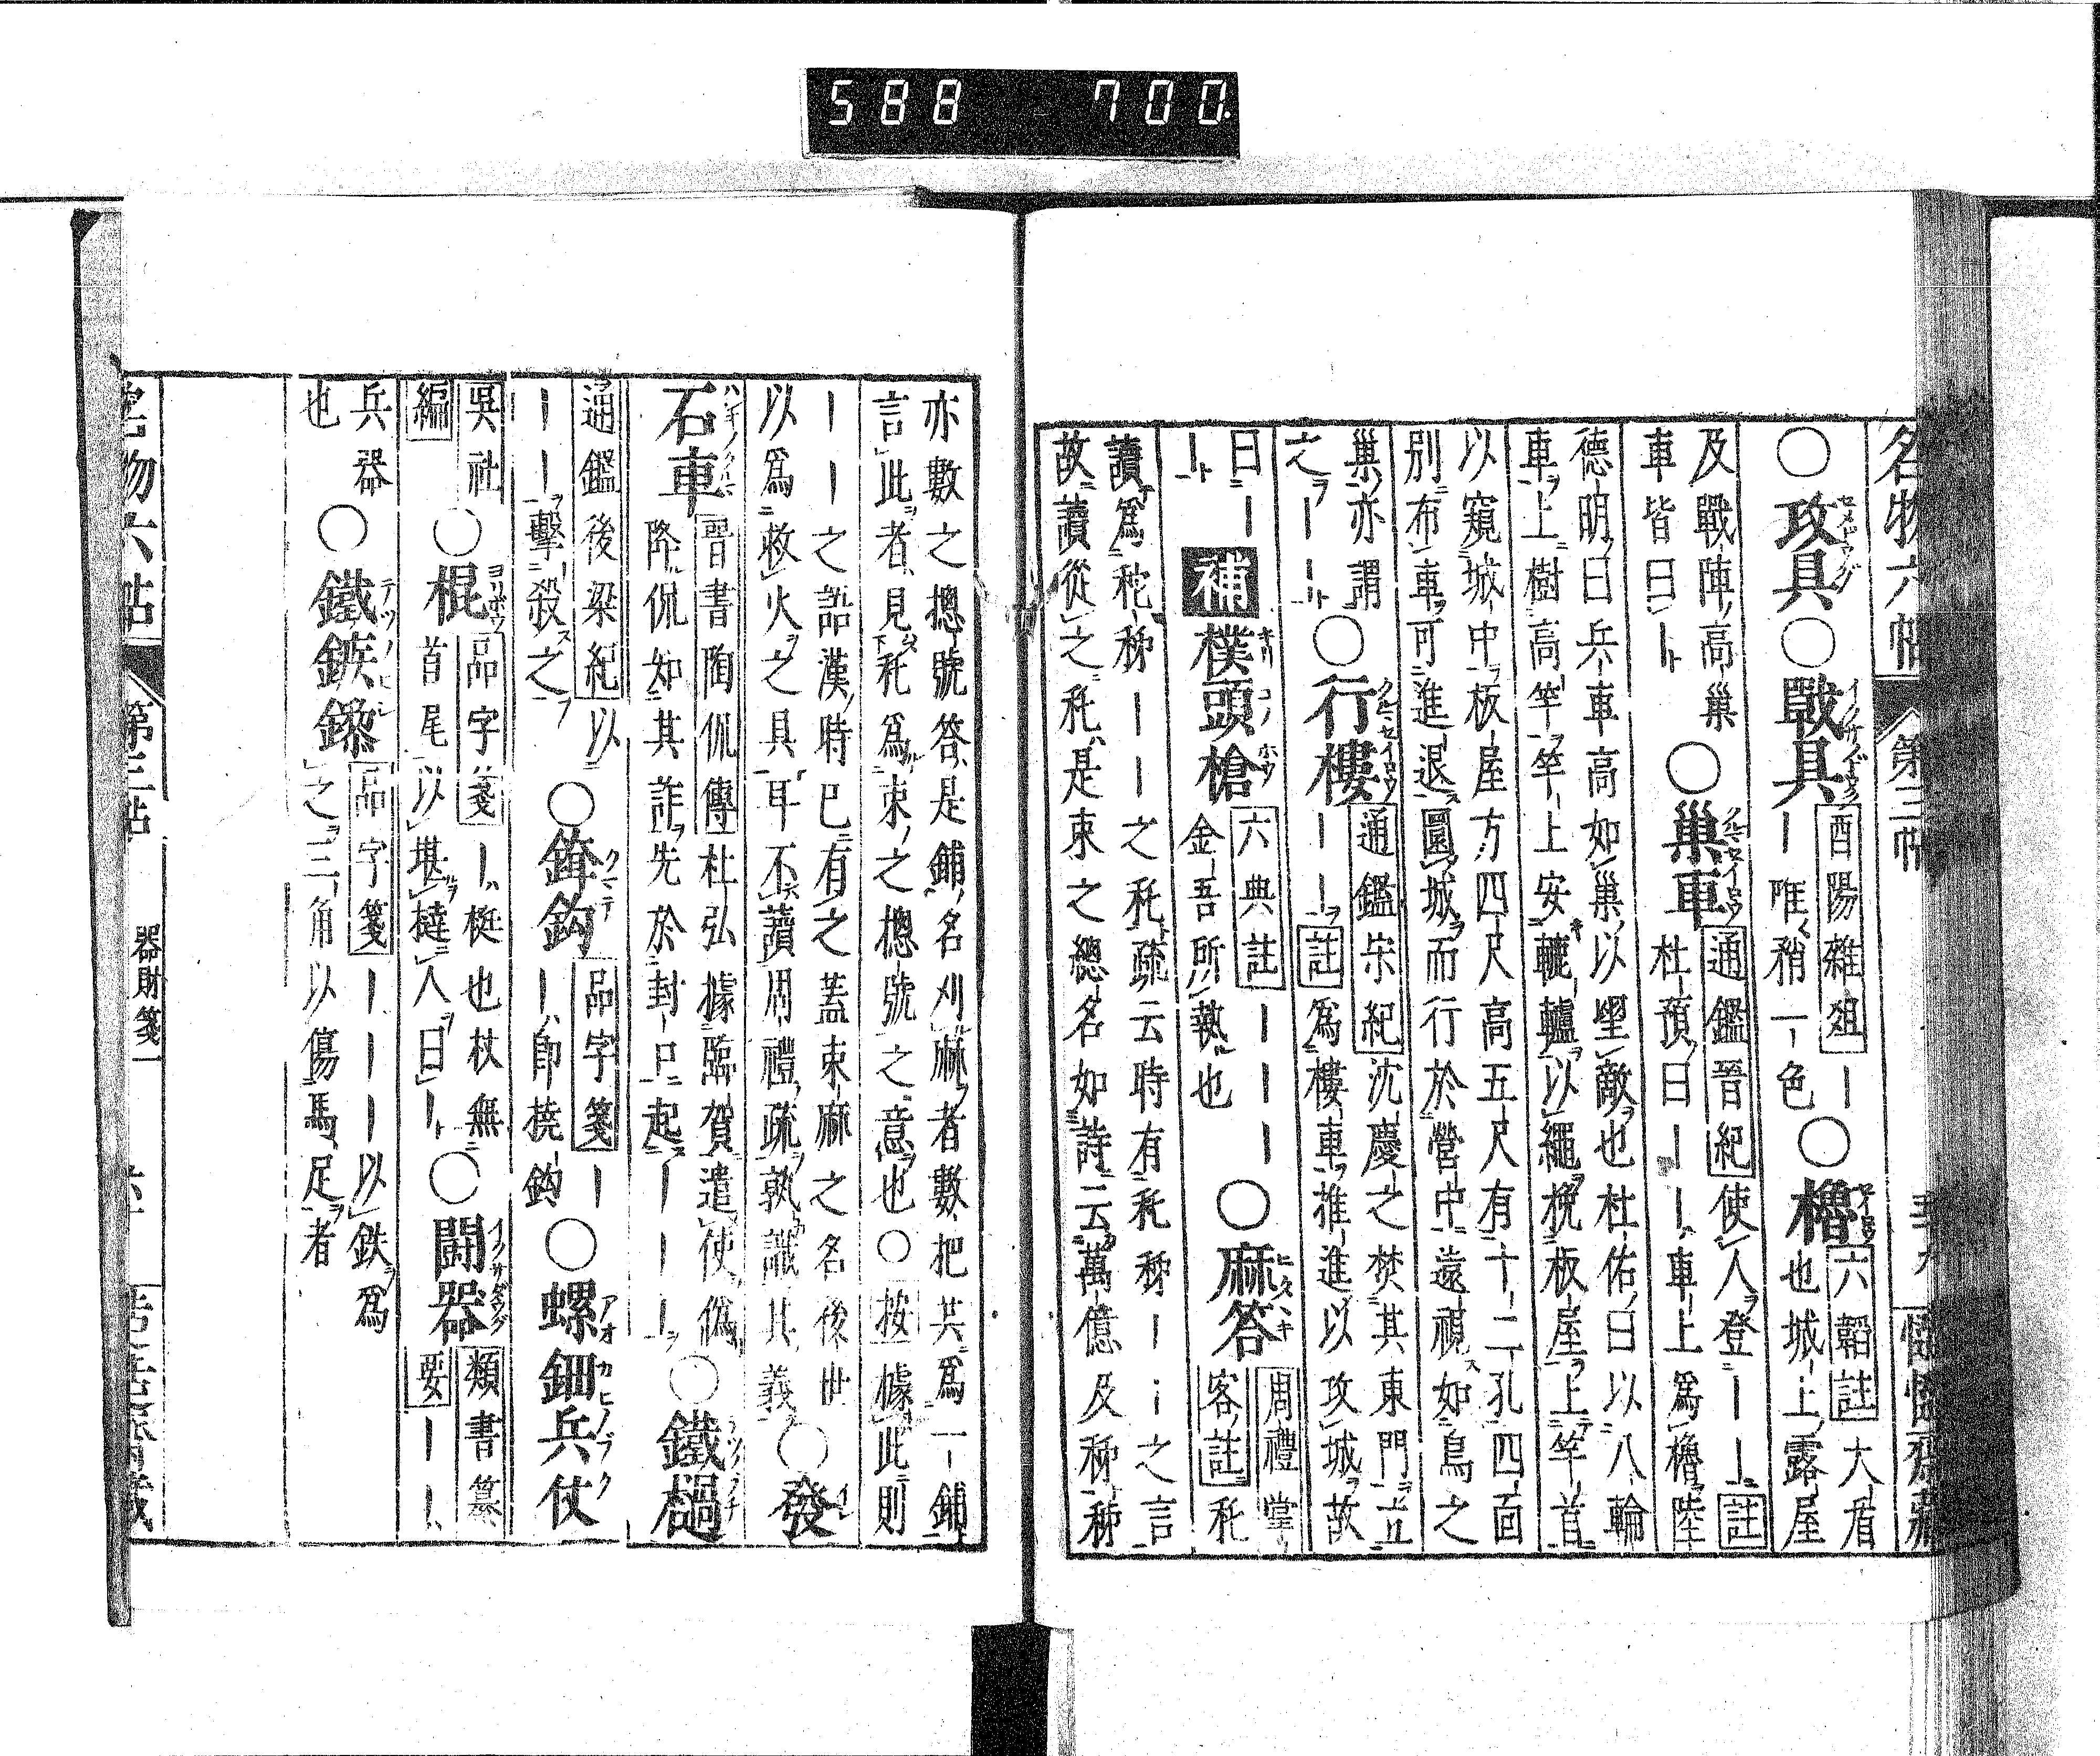 588 700
名物六帖 第三帖
〇攻具〇戰具 酉陽雜俎 ｜
｜唯稍一色〇櫓 六韜註 大盾
也城上露屋
及戰陣高巢
車皆曰｜〇巢車 通鑑晉紀 使人登｜｜註
杜預曰｜｜車上爲櫓陸
德明曰兵車高如巢以望敵也杜佑曰以八輪
車上樹高竿竿上安轆轤以繩挽板屋上竿首
以窺城中板屋方四尺高五尺有十二孔四面
別布車可進退圜城而行於營中遠視如鳥之
巢亦謂
之｜｜〇行樓 通鑑宋紀 沈慶之焚其東門立
｜｜註 爲樓車推進以攻城故
曰｜
｜補 樸頭槍 六典註 ｜｜｜
金吾所執也〇麻荅 周禮掌
客註 秅
讀爲秅秭｜｜｜之秅疏云時有秅秭｜｜之言
故讀從之秅是束之總名如詩云萬億及秭秭
亦數之摠號荅是鋪名刈麻者數把共爲一鋪
言此者見秅爲束之摠號之意也〇按據此則
｜｜之詻漢時已有之蓋束麻之名後世
以爲救火之具耳不讀周禮疏孰識其義〇發
石車 晉書陶侃傳 杜弘據臨賀遣使僞
降侃知其詐先於封口起｜｜｜〇鐵檛
通鑑後梁紀 以
｜｜擊殺之〇鋒鈎 品字箋 ｜
｜卽撓鈎〇螺鈿兵仗
吳社
編〇棍 品字箋 ｜梃也杖無
首尾以堪撻人曰｜〇鬬器 類書纂
要 ｜｜
兵器
也〇鐵鏃鑗 品字箋 ｜｜｜以鉄爲
之三角以傷馬足者
名物六帖 第三帖 器財箋一